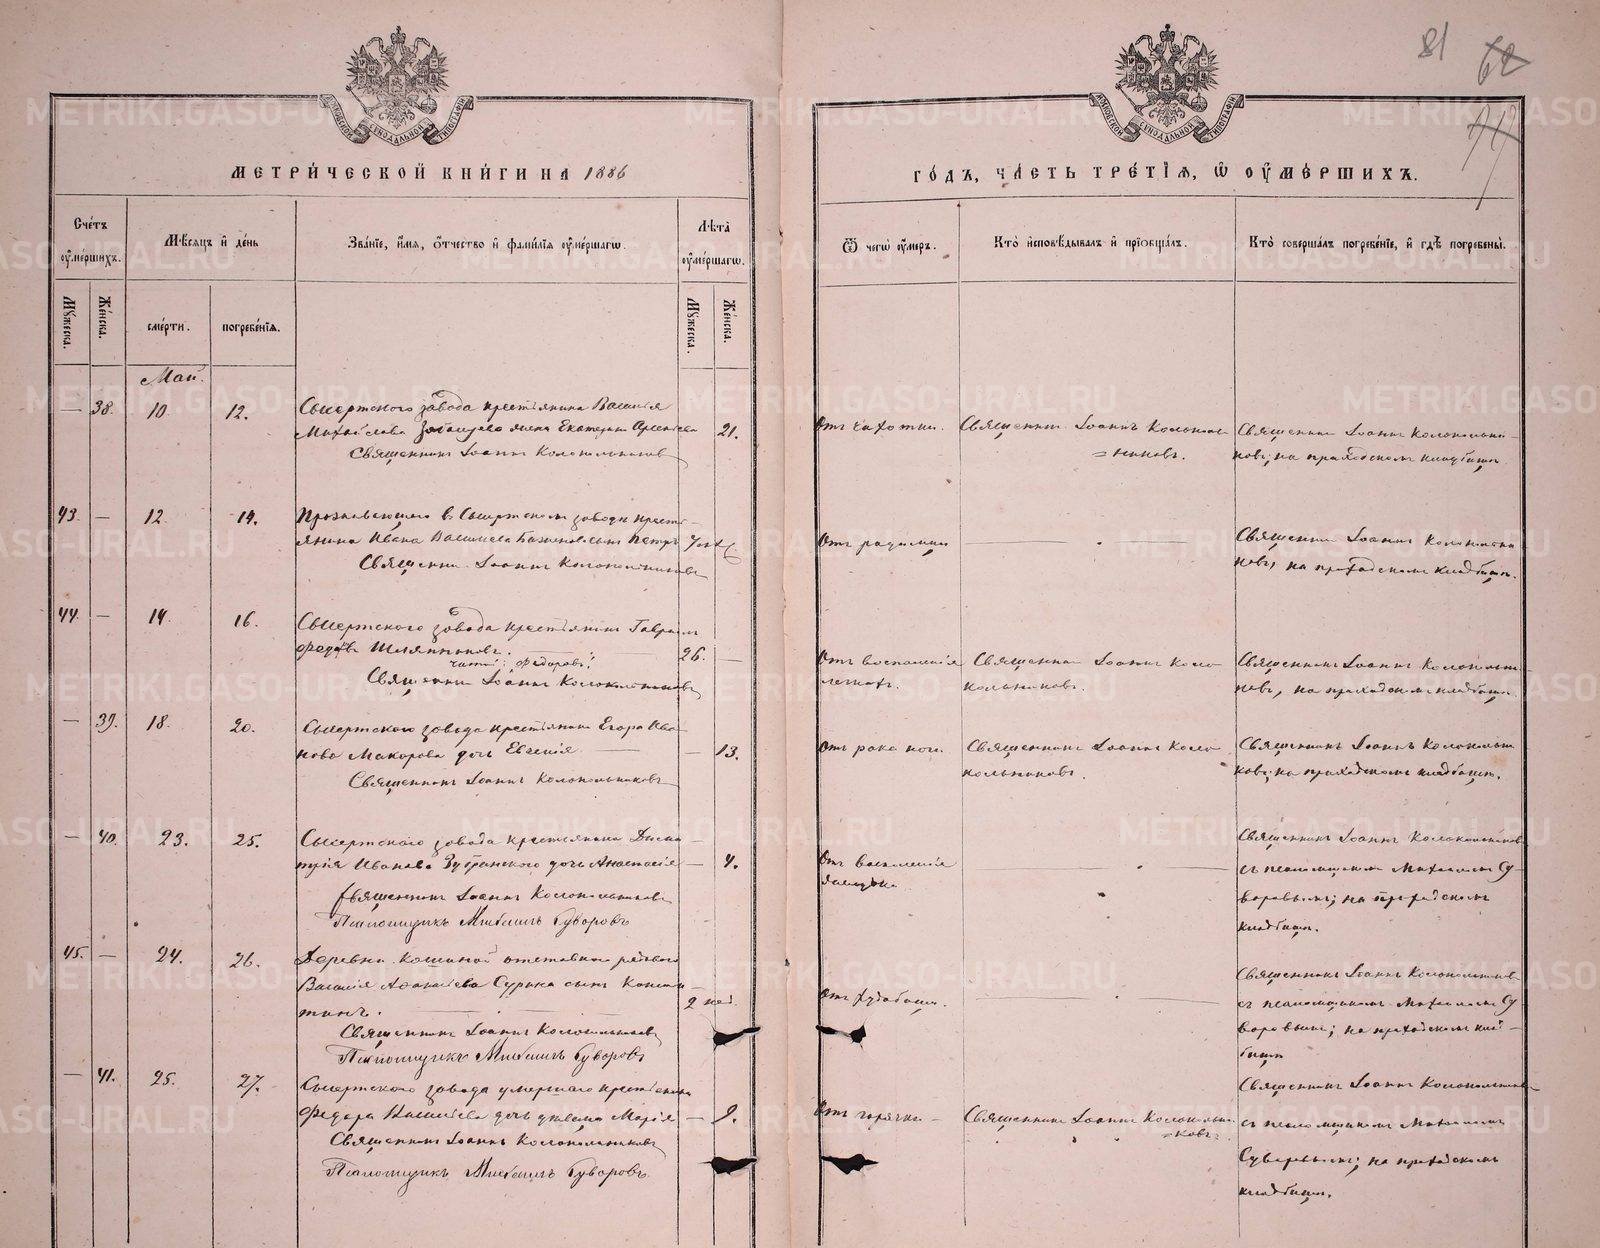 81 62
МЕТРИ́ЧЕСКОЙ КНИ́ГИ НА 1886
ГО́ДЪ, ЧА́СТЬ ТРЕ́ТІѦ, Ѽ ОУ҆МЕ́РШИХЪ.
Сче́тъ оу҆ме́ршихъ.
Мѣ́сѧцъ и҆ де́нь
Зва́нїе, и҆́мѧ, ѻ҆́тчество и҆ фамилїѧ оу҆ме́ршагѡ.
Лѣ́та оу҆ме́ршагѡ.
Ѿ чегѡ̀ оу҆́меръ.
Кто̀ и҆сповѣ́дывалъ и҆ прїобща́лъ.
Кто̀ соверша́лъ погребе́нїе, и҆ гдѣ̀ погребены̀.
Мꙋ́жеска.
Же́нска.
сме́рти.
погребе́нїѧ.
Мꙋ́жеска.
Же́нска.
Май.
— 38. 10. 12. Сысертскаго завода крестьянина Василія
Михайлова жена Екатерина 21.
Священникъ Іоаннъ Колокольниковъ
Отъ чахотки. Священникъ Іоаннъ Колоколь
=никовъ.
Священникъ Іоаннъ Колокольни-
ковъ; на приходскомъ кладбищѣ.
43. — 12. 14. Проживающаго въ Сысертскомъ заводѣ кресть-
янина Ивана Васильева сынъ Петръ
Священникъ Іоаннъ Колокольниковъ
Отъ родимца — . —
Священникъ Іоаннъ Колокольни
ковъ, на приходскомъ кладбищѣ.
44. — 14. 16. Сысертскаго завода крестьянинъ Гавріилъ
Шляпниковъ. 26. —
читай: Федоровъ.
Священникъ Іоаннъ Колокольниковъ
Отъ воспаленія
легкихъ.
Священникъ Іоаннъ Коло
кольниковъ.
Священникъ Іоаннъ Колокольни-
ковъ, на приходскомъ кладбищѣ.
— 39. 18. 20. Сысертскаго завода крестьянина Егора Ива-
нова Макарова дочь Евгенія — — 13.
Священникъ Іоаннъ Колокольниковъ
Отъ рака ноги. Священникъ Іоаннъ Коло
кольниковъ.
Священникъ Іоаннъ Колокольни
ковъ; на приходскомъ кладбищѣ.
— 40. 23. 25. Сысертскаго завода крестьянина Дими-
трія Иванова дочь Анастасія — 4.
Священникъ Іоаннъ Колокольниковъ
Псаломщикъ Михаилъ Суворовъ
Отъ воспаленія
желудка.
— . —
Священникъ Іоаннъ Колокольниковъ
съ псаломщикомъ Михаиломъ Су-
воровымъ; на приходскомъ
кладбищѣ.
45. — 24. 26. Деревни Кошиной отставнаго рядоваго
Василія сынъ Констан
тинъ. — 2 нед.
Священникъ Іоаннъ Колокольниковъ
Псаломщикъ Михаилъ Суворовъ
Отъ худобищи. — . —
Священникъ Іоаннъ Колокольниковъ
съ псаломщикомъ Михаиломъ Су
воровымъ; на приходскомъ клад-
бищѣ
— 41. 25. 27. Сысертскаго завода умершаго крестьянина
Федора Васильева дочь дѣвица Марія — 9.
Священникъ Іоаннъ Колокольниковъ
Псаломщикъ Михаилъ Суворовъ.
Отъ горячки — Священникъ Іоаннъ Колокольни
=ковъ.
Священникъ Іоаннъ Колокольниковъ
съ псаломщикомъ Михаиломъ
Суворовымъ; на приходскомъ
кладбищѣ.
METRIKI.GASO-URAL.RU